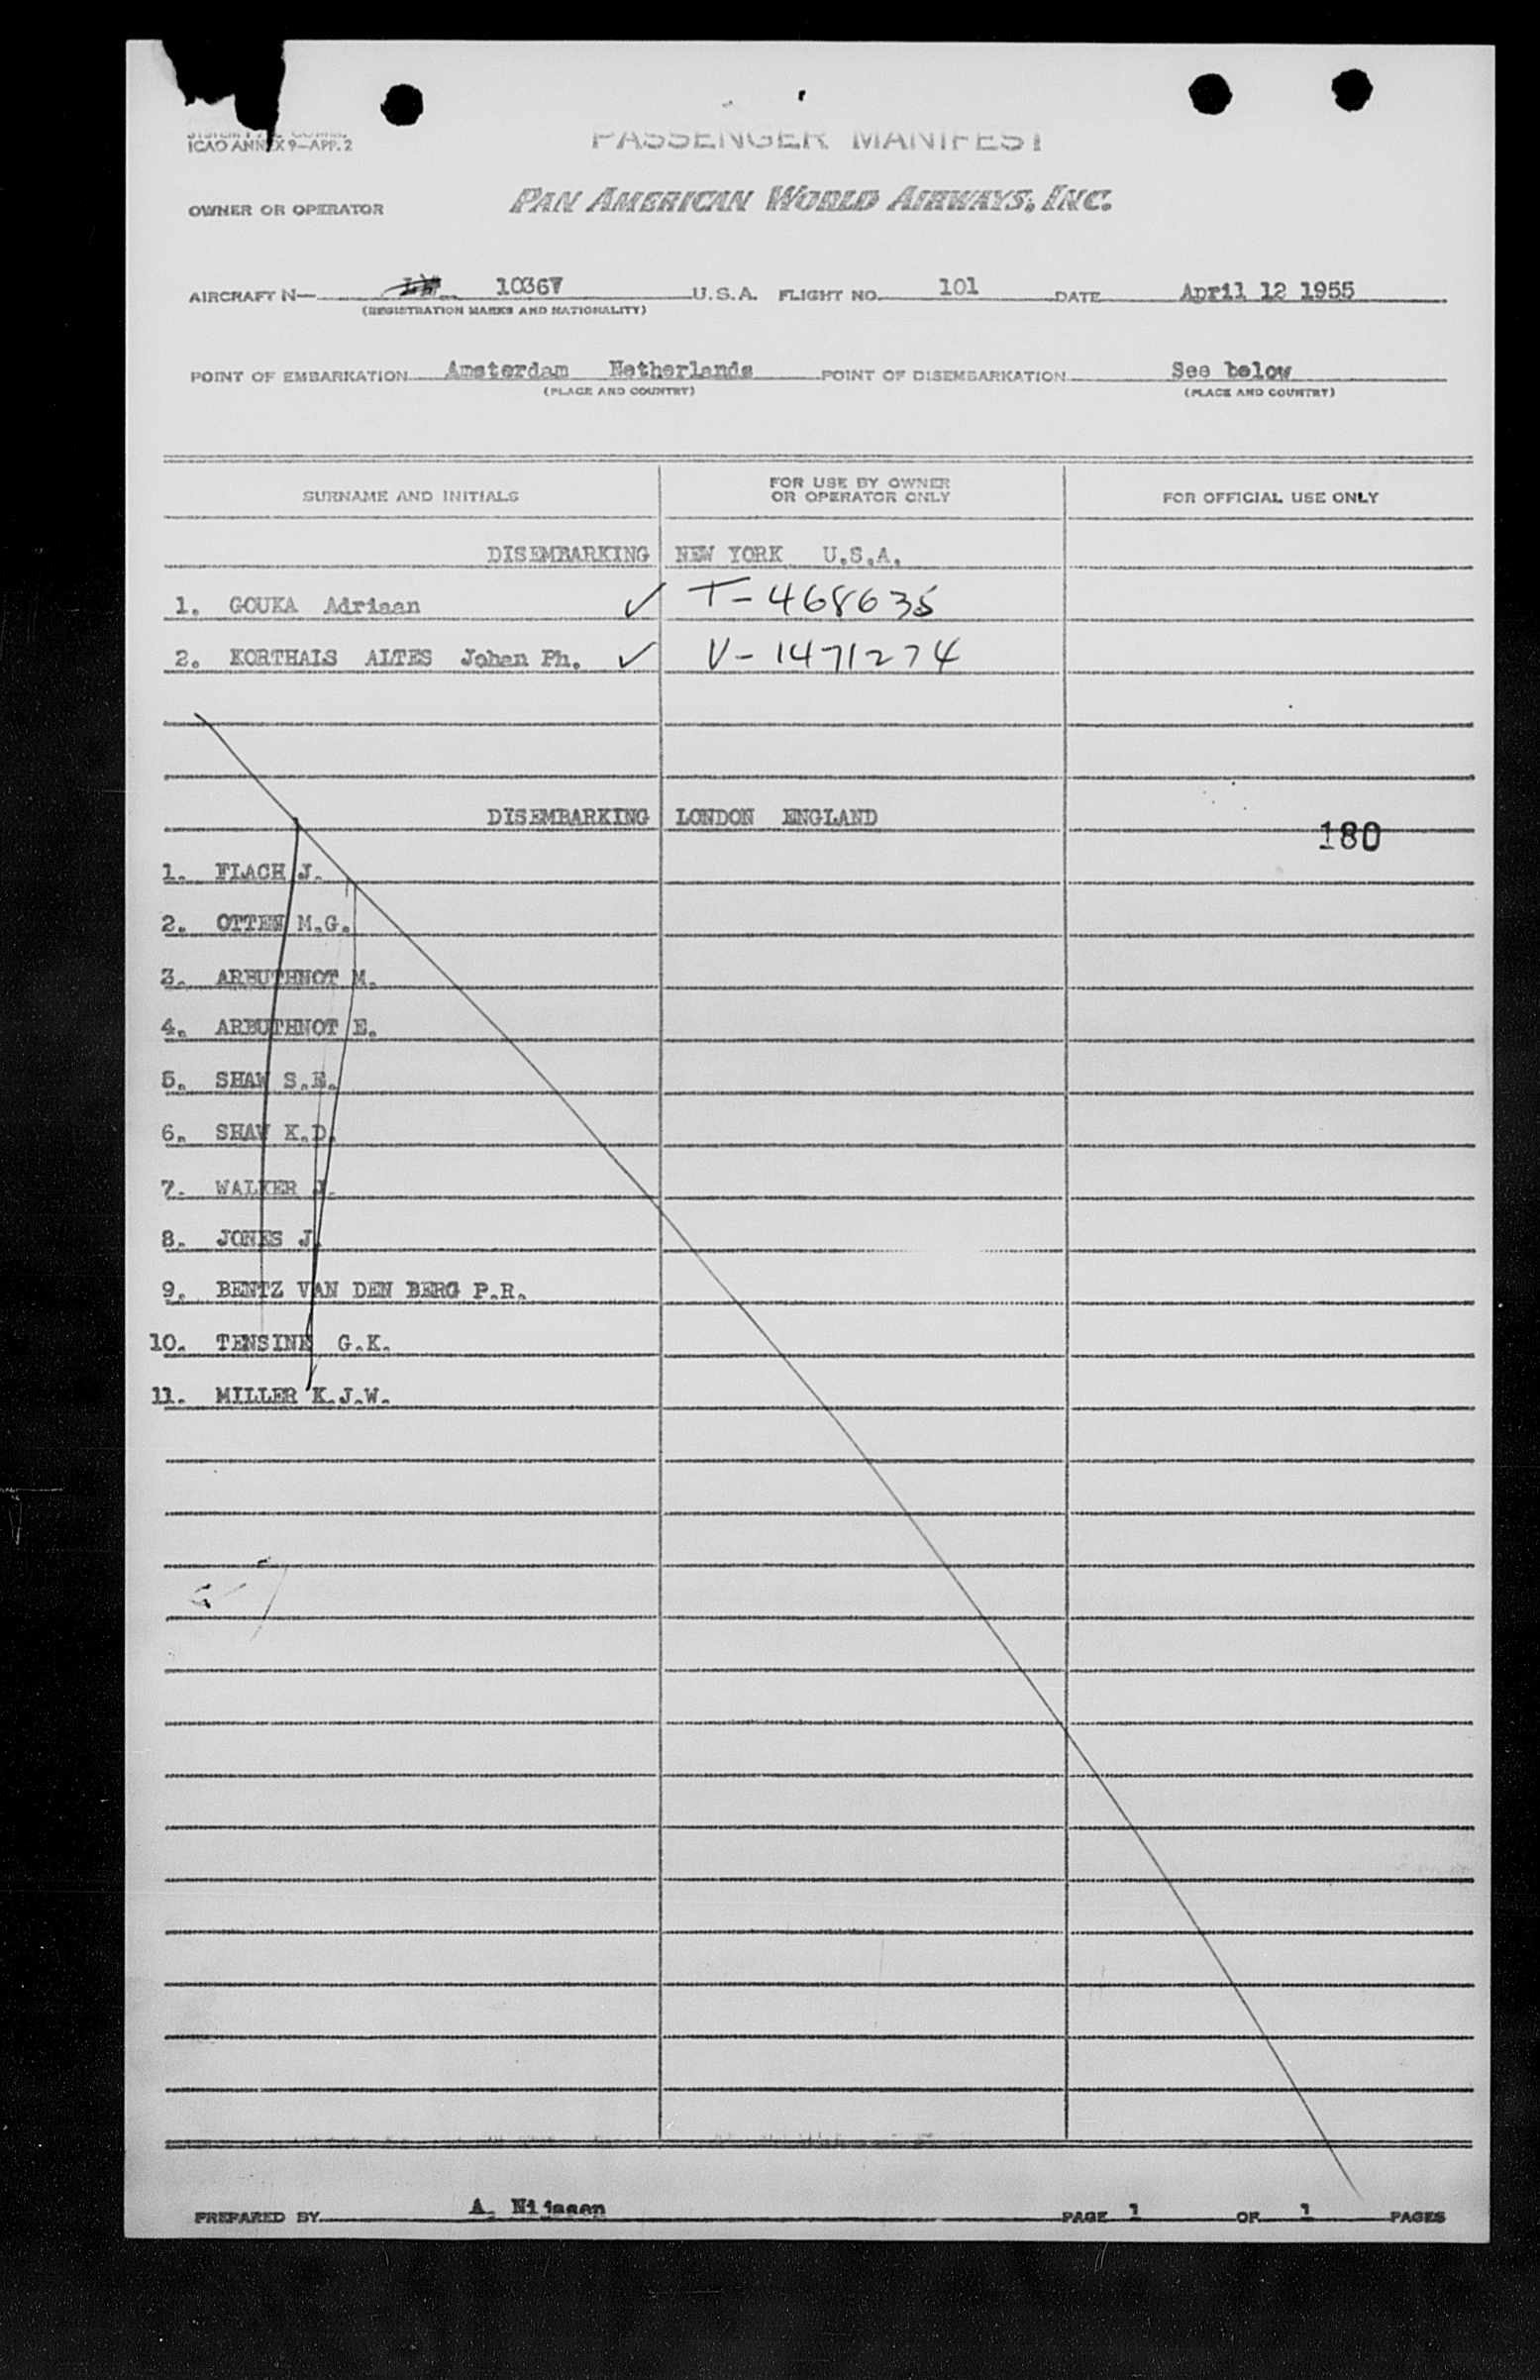 ICAO ANNEX 9—APP. 2
PASSENGER MANIFEST
OWNER OR OPERATOR PAN AMERICAN WORLD AIRWAYS, INC.
AIRCRAFT N— 1036V U.S.A. FLIGHT NO. 101 DATE April 12 1955
(REGISTRATION MARKS AND NATIONALITY)
POINT OF EMBARKATION Amsterdam Netherlands POINT OF DISEMBARKATION See below
(PLACE AND COUNTRY) (PLACE AND COUNTRY)
SURNAME AND INITIALS FOR USE BY OWNER OR OPERATOR ONLY FOR OFFICIAL USE ONLY
DISEMBARKING NEW YORK U.S.A.
1. GOUKA Adriaan ✓ T-468635
2. KORTHALS ALTES Johan Ph. ✓ V-1471274
DISEMBARKING LONDON ENGLAND
180
1. FLACH J.
2. OTTEN M.G.
3. ARBUTHNOT M.
4. ARBUTHNOT E.
5. SHAW S.E.
6. SHAW K.D.
7. WALKER J.
8. JONES J.
9. BENTZ VAN DEN BERG P.R.
10. TENSINK G.K.
11. MILLER K.J.W.
PREPARED BY A. Nijssen PAGE 1 OF 1 PAGES